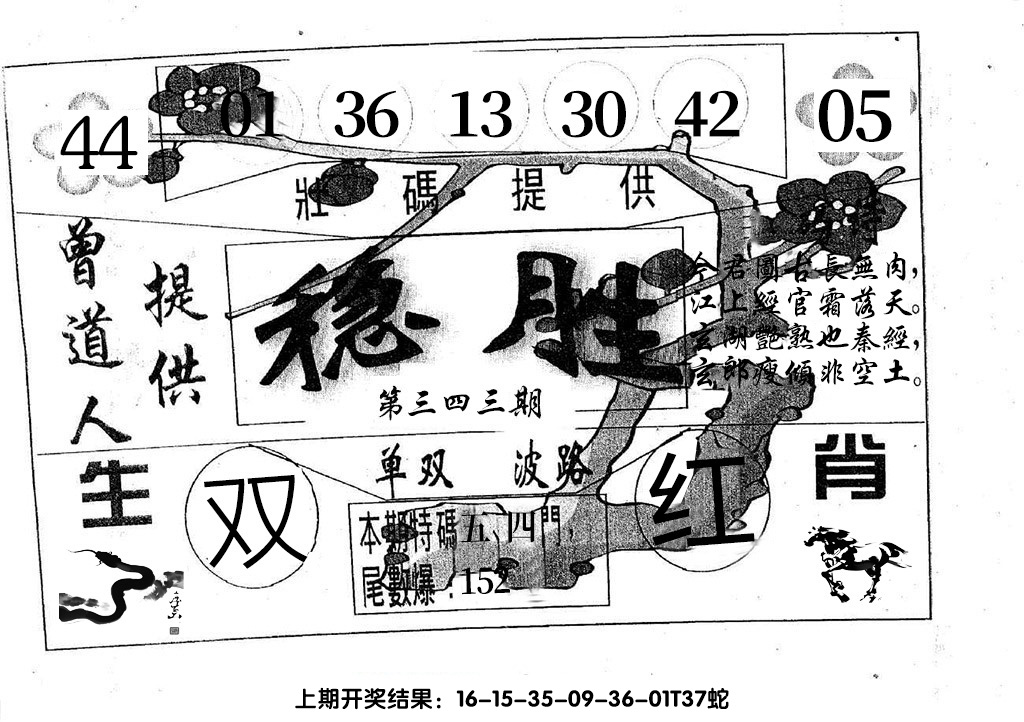 44 01 36 13 30 42 05
壯碼提供
曾道人
提供
稳胜
第三四三期
今君圖古長無肉，
江上經官霜落天。
玄湖艷熟也秦經，
玄郎瘦傾非空土。
单双 波路
生肖
双
红
本期特碼五、四門，
尾數爆：152
上期开奖结果：16-15-35-09-36-01T37蛇